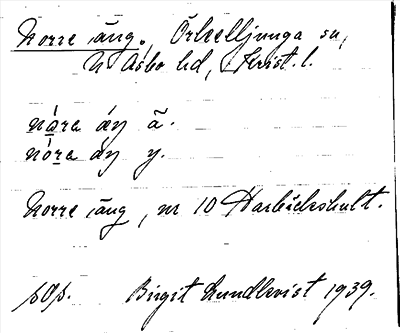 Norre äng., Örkelljunga sn,
N Åsbo hd, Krist. l.
nåra áŋ ã.
nóra áŋ y.
Norre äng, nr 10 Harbäckshult.
sOp. Birgit Lundkvist 1939.